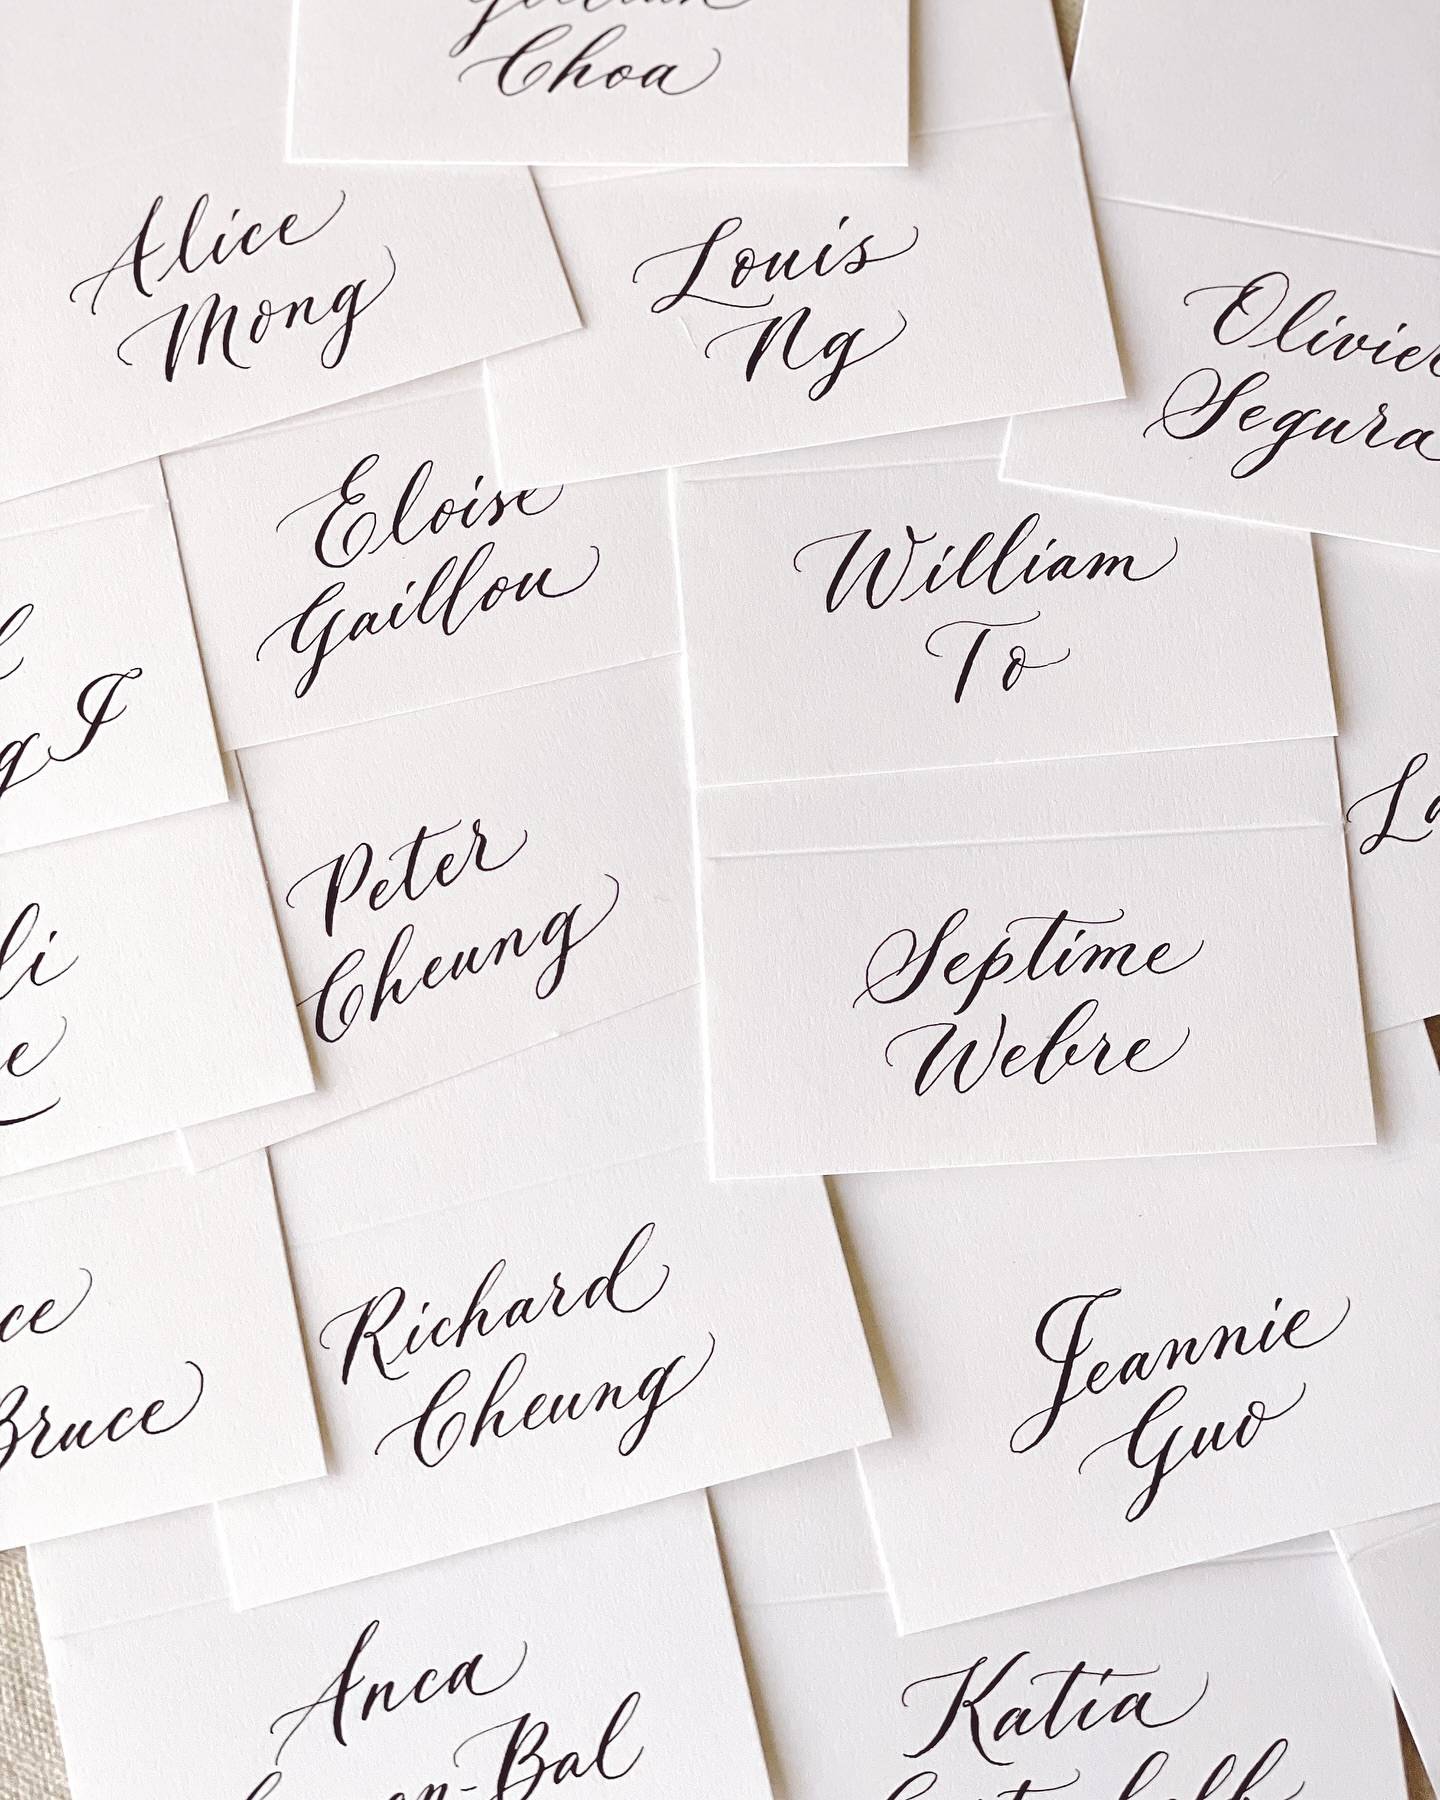 Choa
Alice
Mong
Louis
Ng
Olivier
Segura
Eloise
Gaillou
William
To
Peter
Cheung
Septime
Webre
Bruce
Richard
Cheung
Jeannie
Guo
Anca
Katia